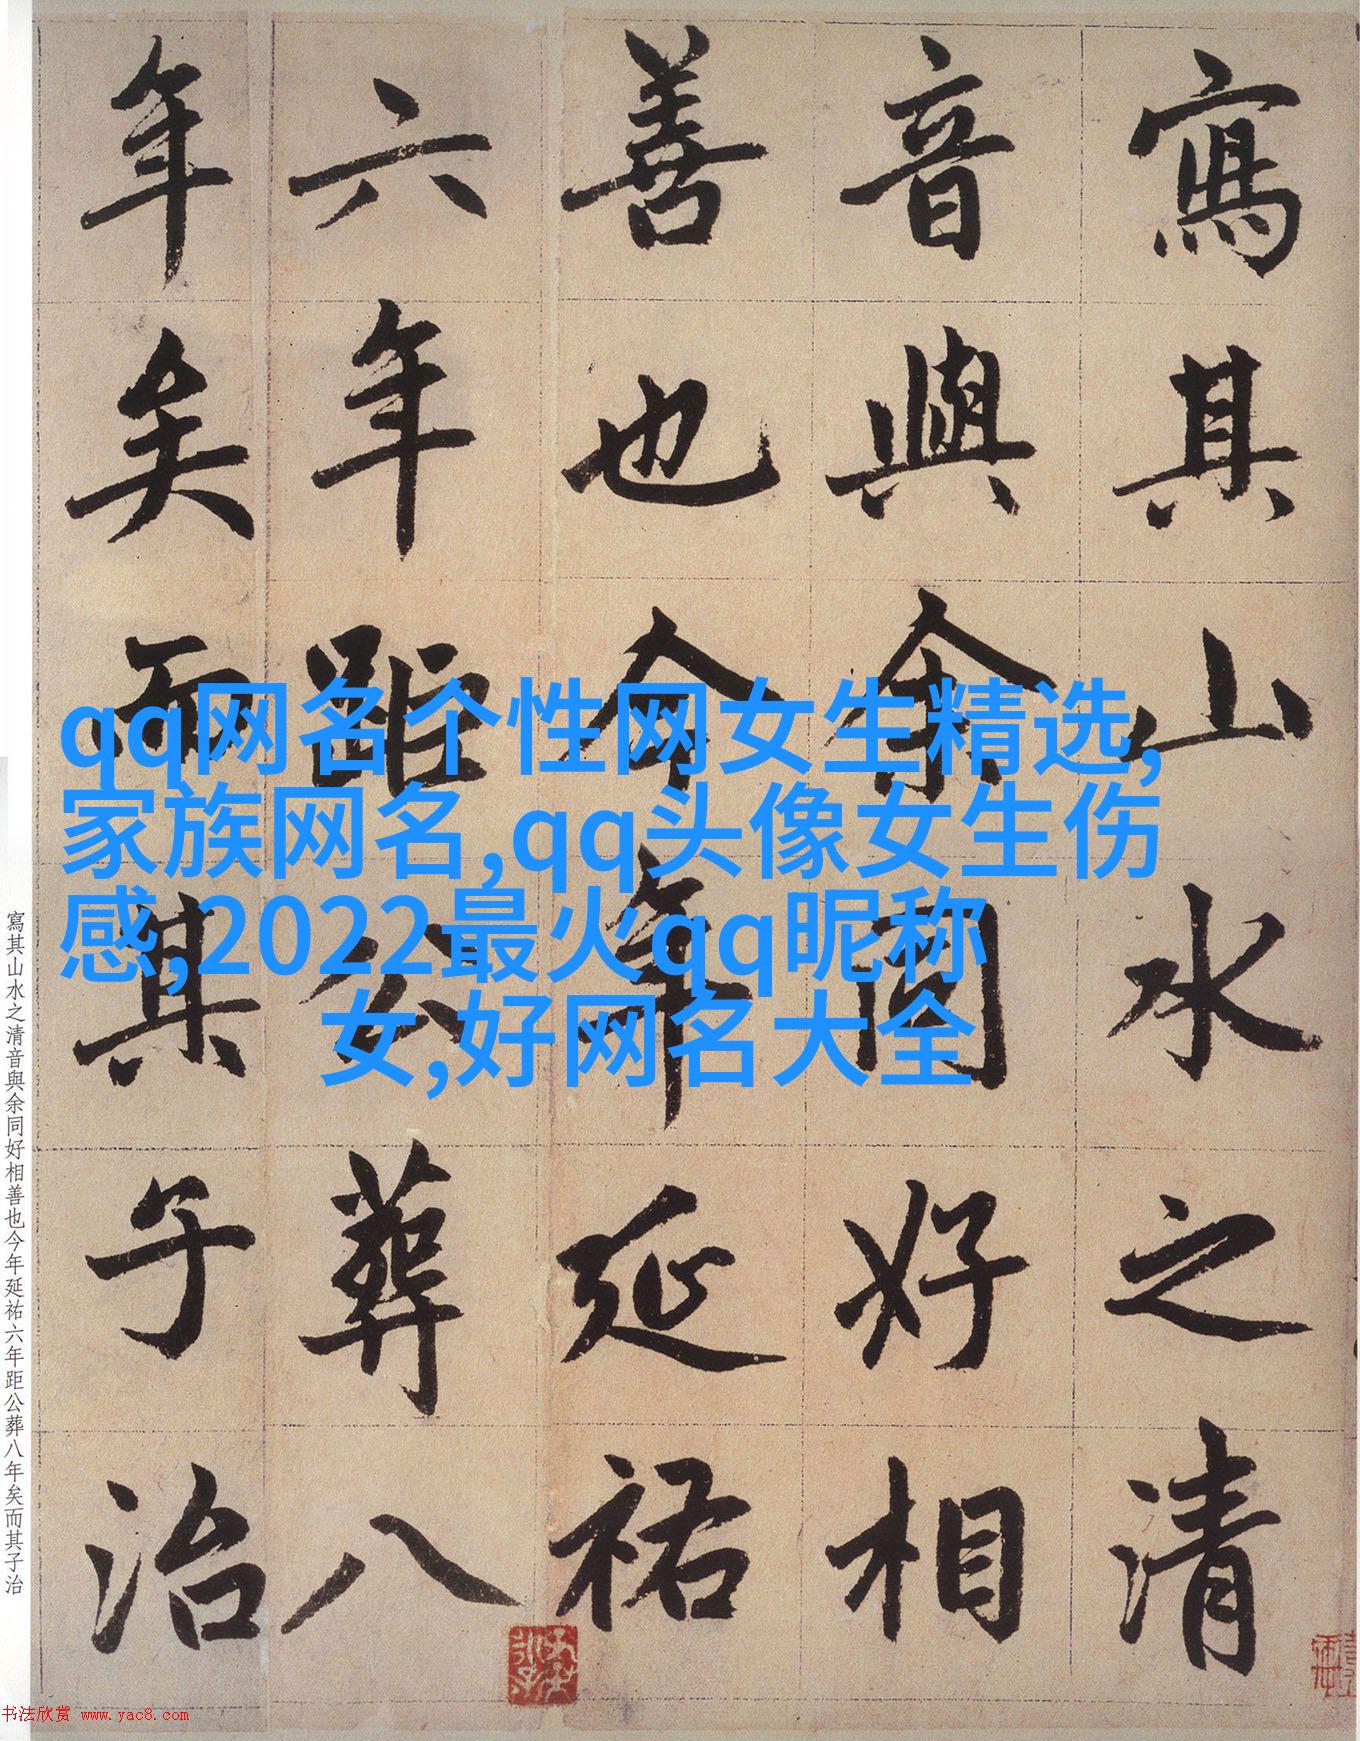 寫其山水之清
音與余同好相
善也今年延祐
六年距公葬八
年矣而其子治
qq网名个性网女生精选,
家族网名,qq头像女生伤
感,2022最火qq昵称
女,好网名大全
寫其山水之清音與余同好相善也今年延祐六年距公葬八年矣而其子治
书法欣赏 www.yac8.com